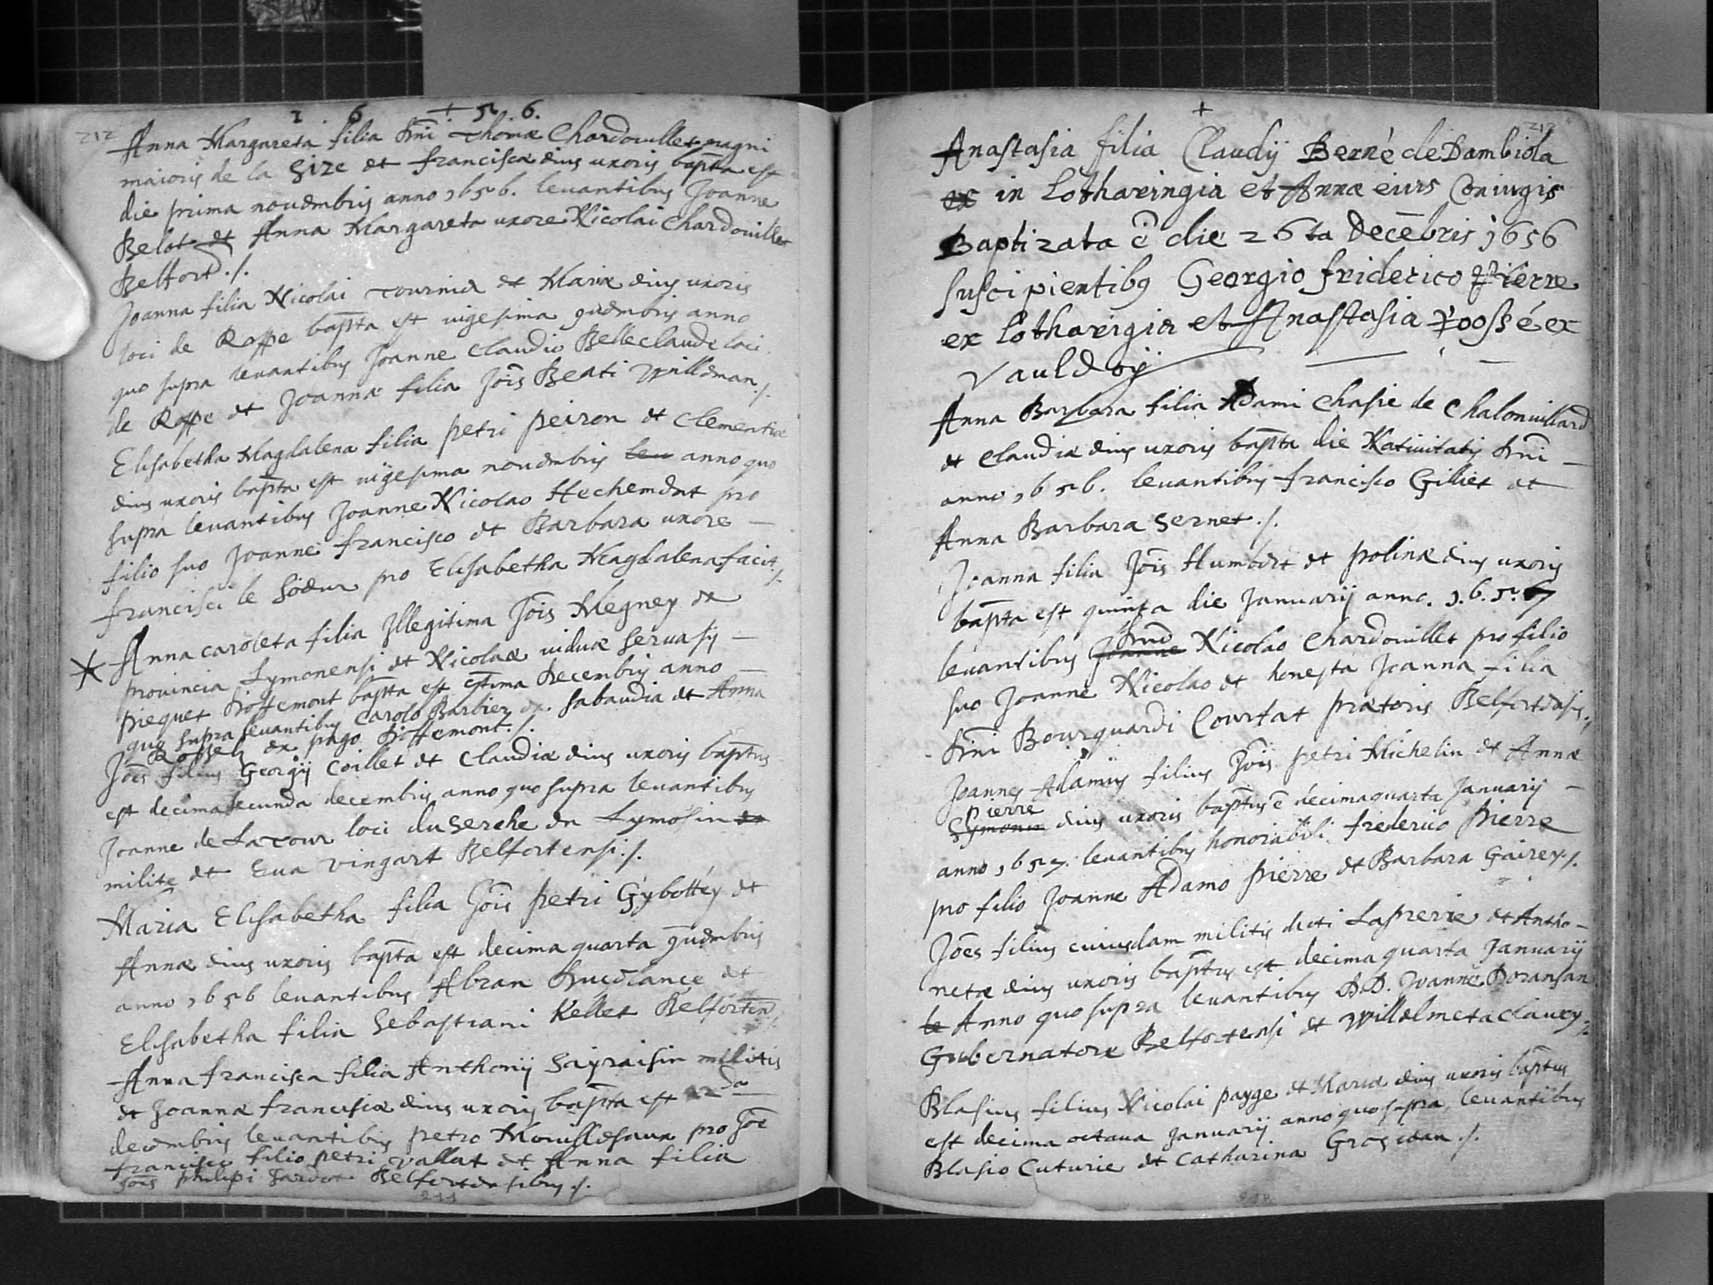 1 6 + 5. 6.
212
Anna Margareta filia dni Thomæ Chardouillet magni
maioris de la Size et francisca eius uxoris bapta est
die prima nouembris anno 1656. leuantibus Joanne
Belot et Anna Margareta uxore Nicolai Chardouillet
Belfort ./.
Joanna filia Nicolai tournier et Mariæ eius uxoris
loci de Roppe bapta est uigesima 9uembris anno
quo supra leuantibus Joanne Claudio Belleclaude loci
de Roppe et Joanna filia Jois Beati Willeman ./.
Elisabetha Magdalena filia petri peiron et Clementiæ
eius uxoris bapta est uigesima nouembris leu anno quo
supra leuantibus Joanne Nicolao Hechement pro
filio suo Joanne francisco et Barbara uxore
francisci le Soeur pro Elisabetha Magdalena facit ./.
Anna caroleta filia Jllegitima Jois Megney de
prouincia Lymonensi et Nicolaæ uiduæ Seruasij
pieguet d'offemont bapta est 7tima Decembris anno
quo supra leuantibus Carolo Barbier ex Sabaudia et Anna
Rossel ex pago d'offemont ./.
Joes filius Georgij Coillet et Claudiæ eius uxoris baptus
est decima secunda decembris anno quo supra leuantibus
Joanne de Latour loci du Serche en Lymosin et
milite et Eua Vingart Belfortensi ./.
Maria Elisabetha filia Jois Petri Gybottey et
Annæ eius uxoris bapta est decima quarta 9uembris
anno 1656 leuantibus Abran
Elisabetha filia Sebastiani Keller Belforten
Anna francisca filia Anthonij Sayraisin militis
et Joannæ franciscæ eius uxoris bapta est 22da
decembris leuantibus petro Mouillesaux pro Joe
francisco filio petri Vallat et Anna filia
Jois philipi Sardot Belfortensibus ./.
211
+
212
Anastasia filia Claudij Berné de Dambiola
ex in Lotharingia et Annæ eiurs Coniugis
Baptizata ē die 26ta Decēbris 1656
Suscipientibus Georgio friderico Pierre
ex Lotharigia et Anastasia Possé ex
Vauldoÿ
Anna Barbara filia Adami Chasie de Chalonuillard
et Claudiæ eius uxoris bapta die Natiuitatis dni
anno 1656. leuantibus francisco Gilliet et
Anna Barbara Sernet ./.
Joanna filia Jois Humbert et polinæ eius uxoris
bapta est quinta die Januarij anno. 1.6.5.7
leuantibus Joanne dno Nicolao Chardouillet pro filio
suo Joanne Nicolao et honesta Joanna filia
dni Bourquardi Courtat prætoris Belfortensis ./.
Joannes Adamus filius Jois petri Michelin et Annæ
Pierre
Symonin eius uxoris baptus ē decimaquarta Januarij
anno 1657. leuantibus honorabili frederico Pierre
pro filio Joanne Adamo pierre et Barbara Gairey ./.
Joes filius cuiusdam militis dicti Laprerie et Antho-
netæ eius uxoris baptus est decima quarta Januarij
te Anno quo supra leuantibus D.D. Yuanne Doransan
Gubernatore Belfortensi et Willelmeta Claucy ./.
Blasius filius Nicolai payge et Mariæ eius uxoris baptus
est decima octaua Januarij anno quo supra, leuantibus
Blasio Cuturie et Catharina Grosjean ./.